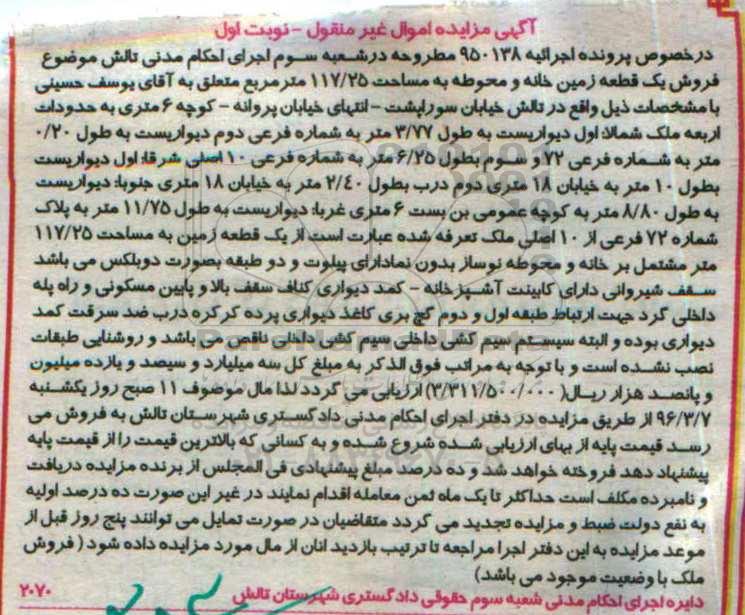 آگهی مزایده اموال غیر منقول - نوبت اول
درخصوص پرونده اجرائیه ۹۵۰۱۳۸ مطروحه درشعبه سوم اجرای احکام مدنی تالش موضوع
فروش یک قطعه زمین خانه و محوطه به مساحت ۱۱۷/۲۵ مترمربع متعلق به آقای یوسف حسینی
با مشخصات ذیل واقع در تالش خیابان سوراپشت - انتهای خیابان پروانه - کوچه ۶ متری به حدودات
اربعه ملک شمالا: اول دیواریست به طول ۳/۷۷ متر به شماره فرعی دوم دیواریست به طول ۰/۲۰
متر به شماره فرعی ۷۲ و سوم بطول ۶/۲۵ متر به شماره فرعی ۱۰ اصلی شرقا: اول دیواریست
بطول ۱۰ متر به خیابان ۱۸ متری دوم درب بطول ۲/۴۰ متر به خیابان ۱۸ متری جنوبا: دیواریست
به طول ۸/۸۰ متر به کوچه عمومی بن بست ۶ متری غربا: دیواریست به طول ۱۱/۷۵ متر به پلاک
شماره ۷۲ فرعی از ۱۰ اصلی ملک تعرفه شده عبارت است از یک قطعه زمین به مساحت ۱۱۷/۲۵
متر مشتمل بر خانه و محوطه نوساز بدون نمادارای پیلوت و دو طبقه بصورت دوبلکس می باشد
سقف شیروانی دارای کابینت آشپزخانه - کمد دیواری کناف سقف بالا و پایین مسکونی و راه پله
داخلی گرد جهت ارتباط طبقه اول و دوم گچ بری کاغذ دیواری پرده کرکره درب ضد سرقت کمد
دیواری بوده و البته سیستم سیم کشی داخلی سیم کشی داخلی ناقص می باشد و روشنایی طبقات
نصب نشده است و با توجه به مراتب فوق الذکر به مبلغ کل سه میلیارد و سیصد و یازده میلیون
و پانصد هزار ریال( ۳/۳۱۱/۵۰۰/۰۰۰) ارزیابی می گردد لذا مال موصوف ۱۱ صبح روز یکشنبه
۹۶/۳/۷ از طریق مزایده در دفتر اجرای احکام مدنی دادگستری شهرستان تالش به فروش می
رسد قیمت پایه از بهای ارزیابی شده شروع شده و به کسانی که بالاترین قیمت را از قیمت پایه
پیشنهاد دهد فروخته خواهد شد و ده درصد مبلغ پیشنهادی فی المجلس از برنده مزایده دریافت
و نامبرده مکلف است حداکثر تا یک ماه ثمن معامله اقدام نمایند در غیر این صورت ده درصد اولیه
به نفع دولت ضبط و مزایده تجدید می گردد متقاضیان در صورت تمایل می توانند پنج روز قبل از
موعد مزایده به این دفتر اجرا مراجعه تا ترتیب بازدید انان از مال مورد مزایده داده شود ( فروش
ملک با وضعیت موجود می باشد)
دایره اجرای احکام مدنی شعبه سوم حقوقی دادگستری شهرستان تالش ۲۰۷۰